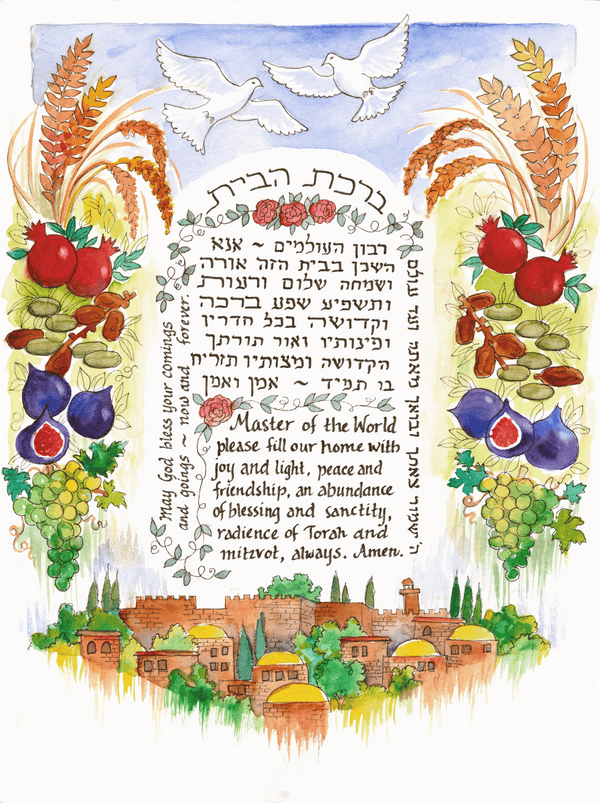 ברכת הבית
רבון העולמים ~ אנא
השכן בבית הזה אורה
ושמחה שלום ורעות
ותשפיע שפע ברכה
וקדושה בכל חדריו
ופינותיו ואור תורתך
הקדושה ומצותיו תזריח
בו תמיד ~ אמן ואמן
ה' ישמור צאתך ובואך מעתה ועד עולם
May God bless your comings
and goings ~ now and forever.
Master of the World
please fill our home with
joy and light, peace and
friendship, an abundance
of blessing and sanctity,
radience of Torah and
mitzvot, always. Amen.